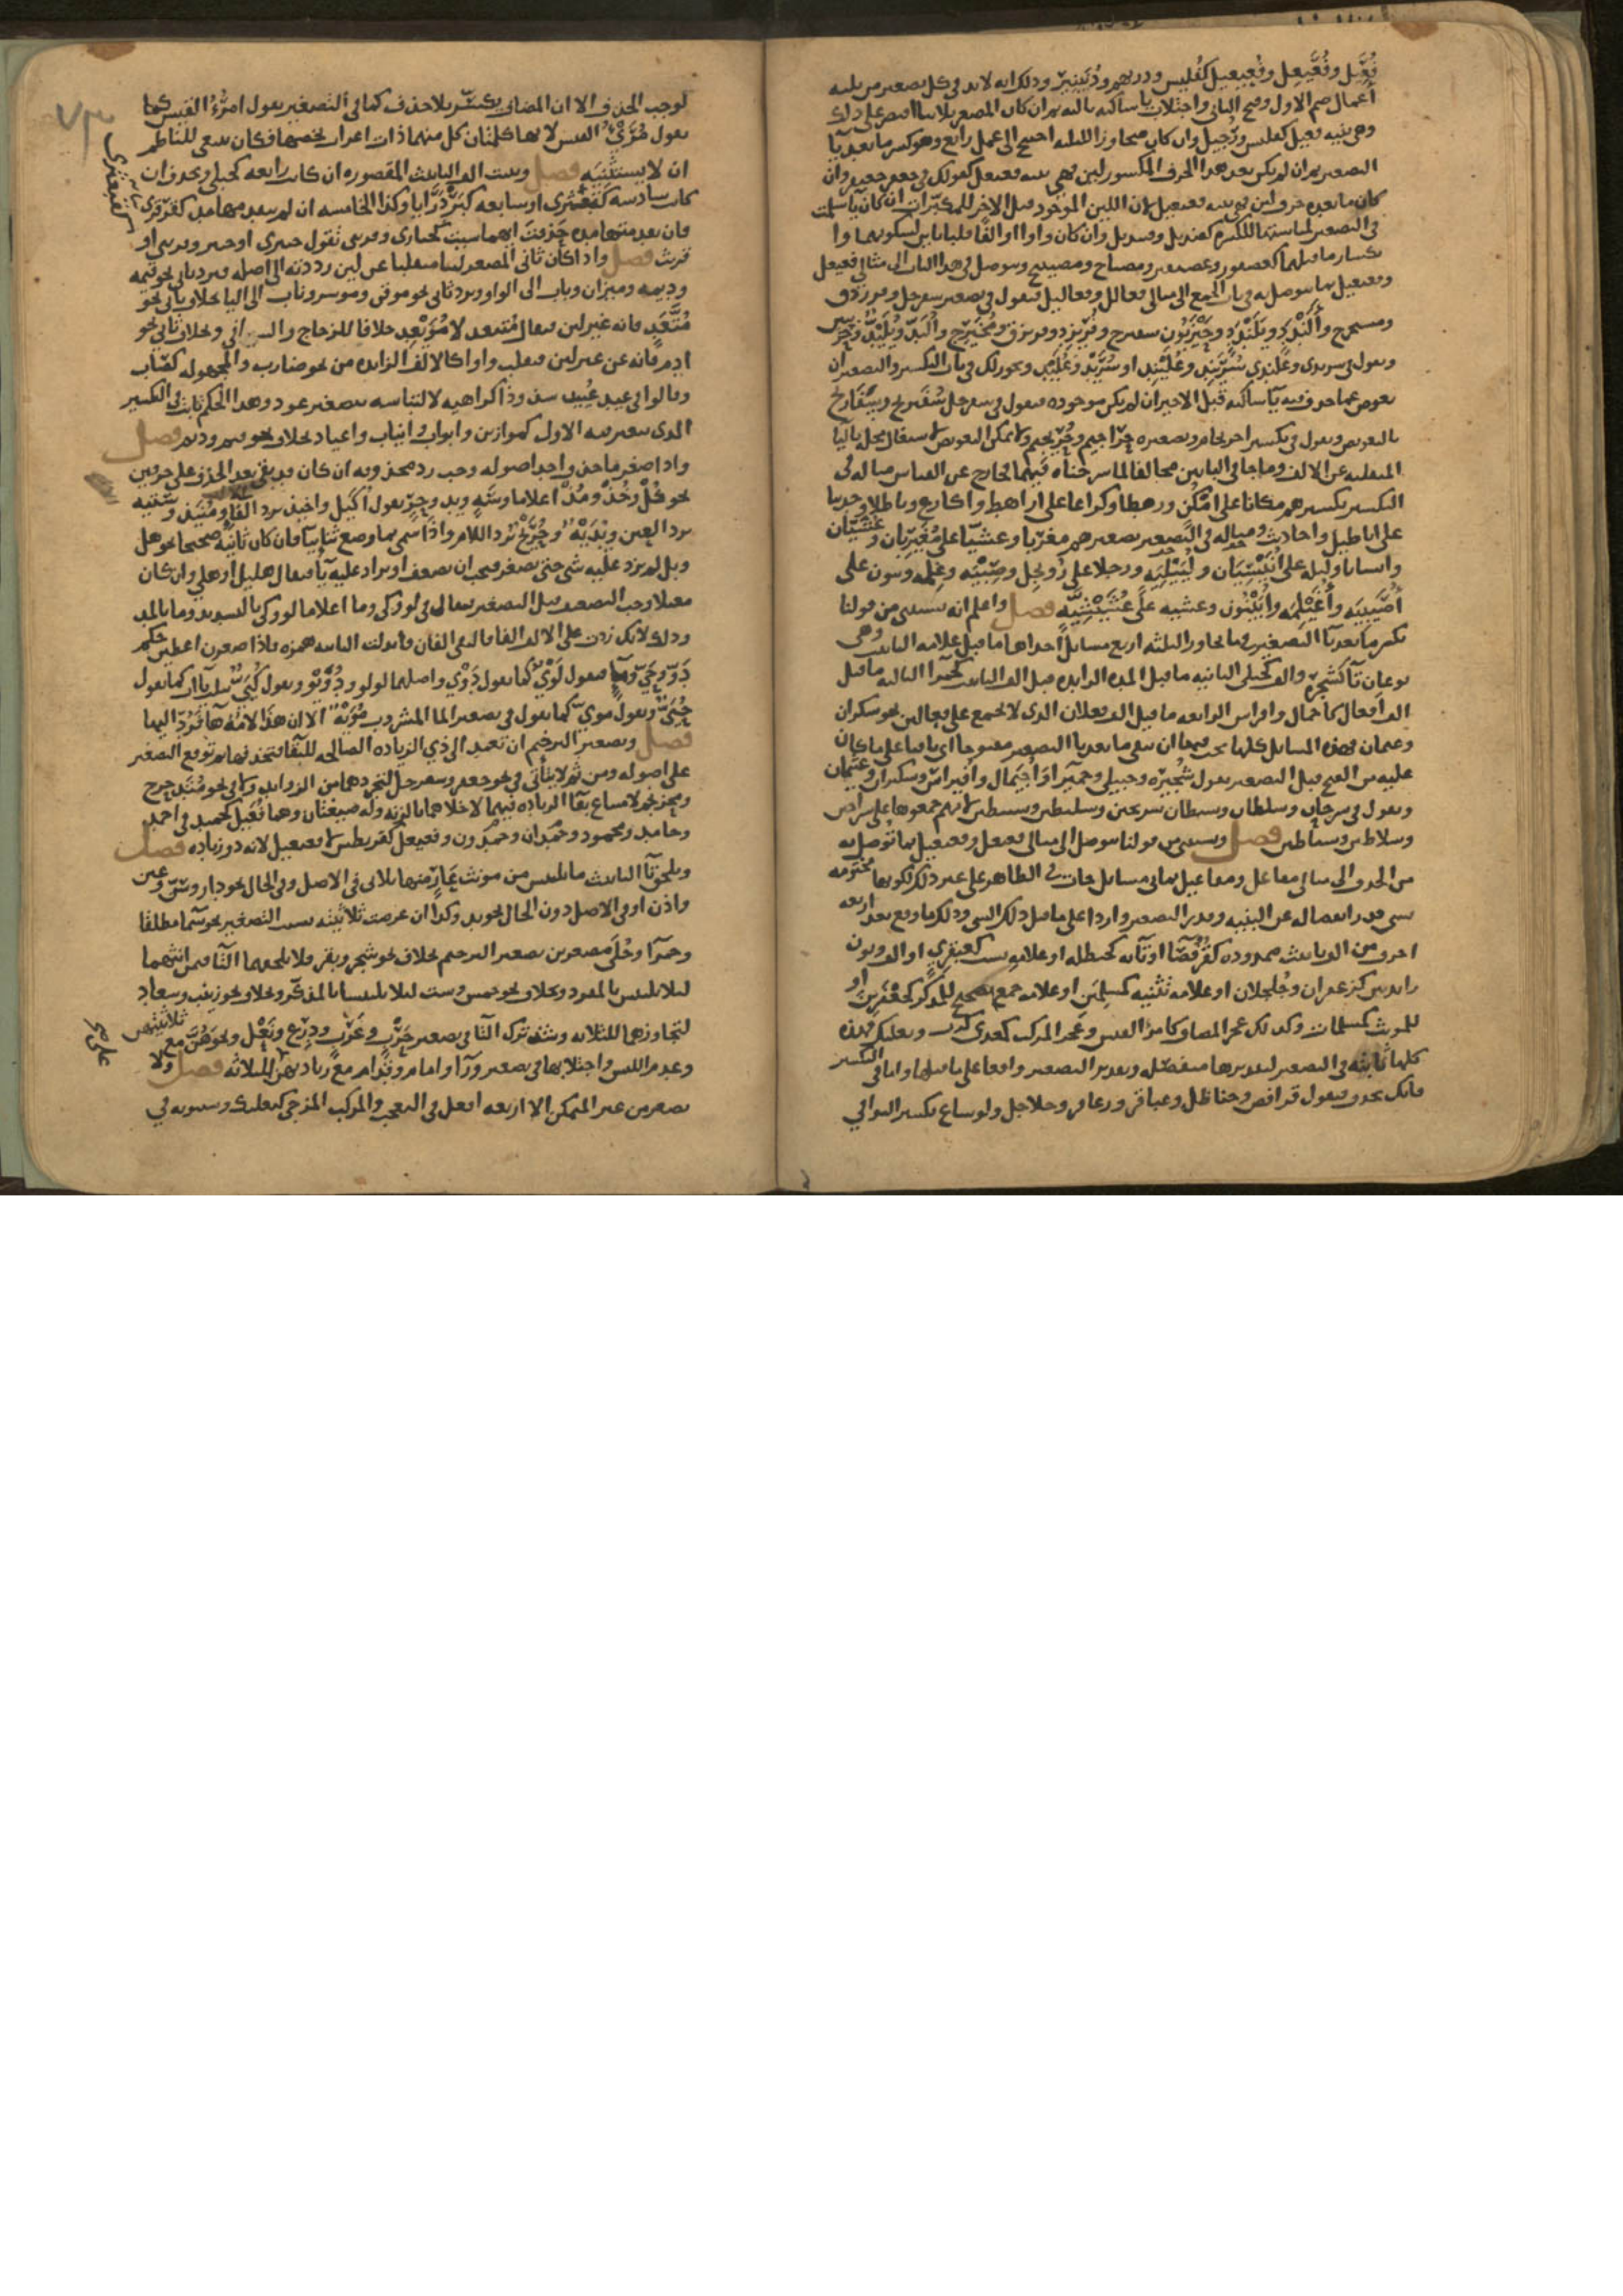 فُعَيل وفُعَيعِل وفُعَيعِيل كفُلَيس ودريهم ودُنَينِير وذلك انه لابد في كل تصغير من ثلثه
اعمال ضم الاول وفتح الثاني واجتلاب ياء ساكنه ثالثه ثم ان كان المصغر ثلاثيا اقتصر على ذلك
وهي بنيه فعيل كفليس ورُجَيل وان كان متجاوزا للثلثه احتيج الى عمل رابع وهو كسر ما بعد يا
التصغير ثم ان لم يكن بعد هذا الحرف المكسور لين فهي بنيه فعيعل كقولك في جعفر جعيفر وان
كان ما بعده حرف لين فهي بنيه فعيعيل لان اللين الموجود قبل الاخر للمكبّر ان كان يآ سلمت
في التصغير لمناسبتها للكسره كقنديل وقنيديل وان كان واوا او الفًا قلبا ياين لسكونهما وا
نكسار ما قبلهما كعصفور وعصيفير ومصباح ومصيبيح ويتوصل في هذا الباب الى مثالي فعيعل
وفعيعيل بما يتوصل به في باب الجمع الى مثالي فعالل وفعاليل فتقول في تصغير سفرجل وفرزدق
ومستخرج وأَلَنْدَد ويَلَنْدَد وحَيْزَبُون سفيرج وفُرَيْزِد وفريزق ومُخَيْرِج وأُلَيدّ ويُلَيْدّ وحُزَيبين
وتقول في سرندى وعَلَندى سُرَيْنِد وعُلَيْنِد او سُرَيْد وعُلَيْد ويجوز لك في باب التكسير والتصغير ان
تعوض مما حذف منه يآ ساكنه قبل الاخير ان لم يكن موجوده فتقول في سفرجل سُفَيريج وسفاريج
بالتعويض وتقول في تكسير احرنجام وتصغيره حراجيم وحُرَيجيم ولا يمكن التعويض لاشتغال محله باليا
المنقلبه عن الالف وما جا في البابين مخالفا لما شرحناه فيهما فخارج عن القياس مثاله في
التكسير تكسيرهم مكانا على امْكُن ورهطا وكراعا على اراهط واكارع وباطلا وحديثا
على اباطيل واحاديث ومثاله في التصغير تصغيرهم مغربا وعشيّا على مُغَيربان وعُشَيّان
وانسانا وليله على أُنَيْسِيَان ولُيَيْلِيَه ورجلا على رُوَيجِل وصِبْيَه وغِلْمه وبنون على
أُصَيْبِيَه وأُغَيْلِمَه وأُبَيْنُون وعشيه على عُشَيْشِيَه فصل واعلم انه يستثنى من قولنا
تكسر ما بعد يآ التصغير فيما تجاوز الثلثه اربع مسايل احداها ما قبل علامه التانيث وهي
نوعان تآ كشجره والف كحبلى الثانيه ما قبل المده الزايده قبل الف التانيث كحمرا الثالثه ما قبل
الف أَفعال كاجمال وافراس الرابعه ما قبل الف فعلان الذي لا يجمع على فعالين نحو سكران
وعثمان فهذه المسايل كلها يجب فيها ان يبقى ما بعد يا التصغير مفتوحا اي باقيا على ما كان
عليه من الفتح قبل التصغير تقول شُجَيْره وحبيلى وحُمَيرا وأُجَيْمال وأُفَيراس وسكيران وعثيمان
وتقول في سرحان وسلطان سريحين وسليطين لانهم جمعوها على سراحين
وسلاطين فصل ويستثنى من قولنا يتوصل الى مثالي فعيعل وفعيعيل بما يتوصل به
من الحذف الى مثالي مفاعل ومفاعيل ثماني مسايل جات في الظاهر على غير ذلك لكونها مختومه
بشي قدر انفصاله عن البنيه وقدر التصغير واردا على ما قبل ذلك الشي وذلك ما وقع بعد اربعه
احرف من الف تانيث ممدوده كقُرْفُصَآ او تآئه كحنظله او علامه نسب كعبقري او الف ونون
زايدتين كزعفران وجُلجُلان او علامه تثنيه كمسلمَين او علامه جمع تصحيح للمذكر كجعفرِين او
للمونث كمسلمات وكذلك عجز المضاف كامرئ القيس وعجز المركب كمعدي كرب وبعلبك فهذه
كلها ثابته في التصغير لتقديرها منفصله وتقدير التصغير واقعا على ما قبلها واما في التكسير
فانك تحذف فتقول قرافص وحناظل وعباقر وزعافر وجلاجل ولو ساغ تكسير البواقي
لوجب الحذف الا ان المضاف يكسّر بلا حذف كما في التصغير تقول امرُؤُ القيس كما
تقول مُرَيْئُ القيس لانهما كلمتان كل منهما ذات اعراب يخصها فكان ينبغي للناظم
ان لا يستثنيه فصل وتثبت الف التانيث المقصوره ان كانت رابعه كحبلى وتحذف ان
كانت سادسه كقبعثرى او سابعه كبَرْدَرَايا وكذا الخامسه ان لم يتقدمها مد كقرقرى
فان تقدمتها مده حذفت ايهما شيت كحبارى وقريثى تقول حبيرى او حبير وقريثى او
قريث فصل واذا كان ثاني المصغر لينا منقلبا عن لين رددته الى اصله فيرد ثاني نحو قيمه
وديمه وميزان وباب الى الواو ويرد ثاني نحو موقن وموسر وناب الى اليا بخلاف ثاني نحو
مُتَّعِد فانه غير لين فيقال مُتَيعد لا مُوَيْعِد خلافا للزجاج والفارسي وبخلاف ثاني نحو
ادم فانه عن غير لين فيقلب واوا كالالف الزايده من نحو ضارب والمجهوله كصَاب
وقالوا في عيد عُيَيد شذوذا كراهيه لالتباسه بتصغير عود وهذا الحكم ثابت في التكسير
الذي يتغير فيه الاول كموازين وابواب وانياب واعياد بخلاف نحو قيم وديم فصل
واذا صغر ما حذف احد اصوله وجب رد محذوفه ان كان قد بقي بعد الحذف على حرفين
نحو كُلْ وخُذْ ومُذْ اعلاما وسَهٍ ويد وحِرٍ تقول أُكَيل واخيذ برد الفا ومُنَيذ وستيهه
برد العين ويُدَيَّه وحُرَيْح برد اللام واذا سمي بما وضع ثنائيا فان كان ثانيه صحيحا نحو هل
وبل لم يزد عليه شي حتى يصغر فيجب ان يضعف او يزاد عليه يآ فيقال هليل او هلي وان كان
معتلا وجب التضعيف قبل التصغير فيقال في لو وكي وما اعلاما لوّ وكيّ بالتشديد وما بالمد
وذلك لانك زدت على الالف الفا فالتقى الفان فابدلت الثانيه همزه فاذا صغرن اعطين حكم
دَوّ وحَيّ ومآ فتقول لُوَيّ كما تقول دُوَيّ واصلهما لويو ودُوَيْو وتقول كُيَيّ بثلاث ياات كما تقول
حُيَيّ وتقول مويّ كما تقول في تصغير الما المشروب مُوَيْه الا ان هذا لامه هآ فردّ اليها
فصل وتصغير الترخيم ان تعمد الى ذي الزياده الصالحه للبقا فتحذفها ثم توقع التصغير
على اصوله ومن ثم لا يتأتى في نحو جعفر وسفرجل لتجردهما من الزوايد ولا في نحو مُتَدحرج
ومحرنجم لامتناع بقا الزياده فيهما لاخلالها بالزنه وله صيغتان وهما فُعَيل كحميد في احمد
وحامد ومحمود وحَمْدان وحَمْدُون وفعيعل كقريطس لا فعيعيل لانه ذو زياده فصل
وتلحق تآ التانيث ما لا يلبس من مونث عارٍ منها ثلاثي في الاصل وفي الحال نحو دار وسنّ وعين
واذن او في الاصل دون الحال نحو يد وكذا ان عرضت ثلاثيته بسبب التصغير نحو سَمَآ مطلقا
وحمرآ وحُبْلَى مصغرين تصغير الترخيم بخلاف نحو شجر وبقر فلا تلحقهما التا فيمن انثهما
ليلا يلتبس بالمفرد وبخلاف نحو خمس وست ليلا يلتبسا بالمذكر وبخلاف نحو زينب وسعاد
لتجاوزهما للثلاثه وشذ ترك التا في تصغير حَرْب وعَرَب ودِرْع ونَعْل ونحوهنّ مع ثلاثيتهن
وعدم اللبس واجتلابها في تصغير ورآ وامام وقدام مع زيادتهن على الثلاثه فصل ولا
يصغر من غير المتمكن الا اربعه افعل في التعجب والمركب المزجي كبعلبك وسيبويه في